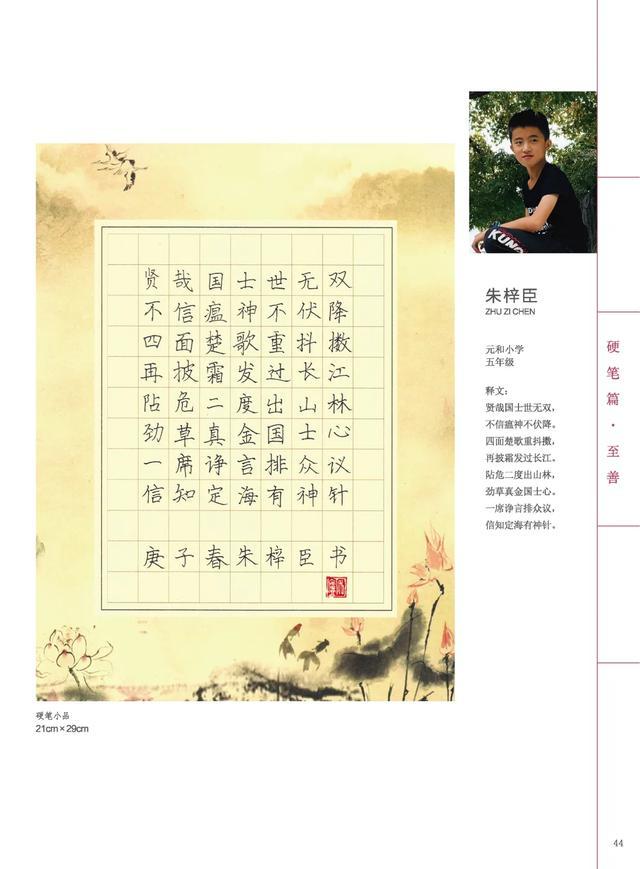 贤哉国士世无双
不信瘟神不伏降
四面楚歌重抖擞
再披霜发过长江
阽危二度出山林
劲草真金国士心
一席诤言排众议
信知定海有神针
庚子春朱梓臣书
硬笔小品
21cm×29cm
KUNG
朱梓臣
ZHU ZI CHEN
元和小学
五年级
释文：
贤哉国士世无双，
不信瘟神不伏降。
四面楚歌重抖擞，
再披霜发过长江。
阽危二度出山林，
劲草真金国士心。
一席诤言排众议，
信知定海有神针。
硬笔篇·至善
44